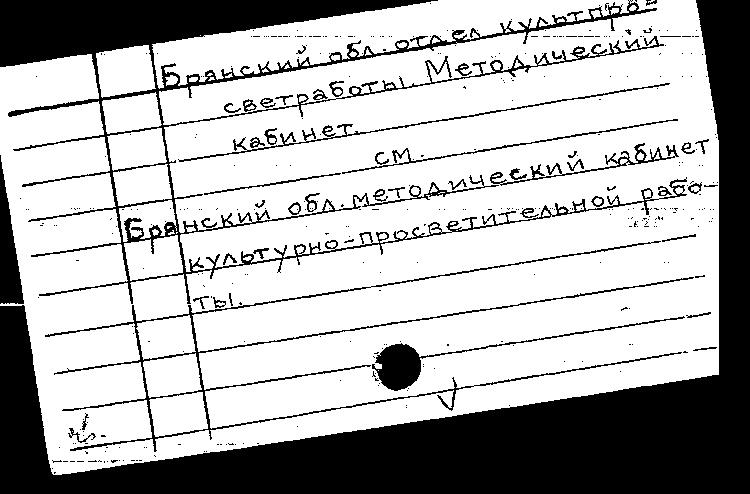 Брянский обл. отдел культпро-
светработы. Методический
кабинет.
см.
Брянский обл. методический кабинет
культурно-просветительной рабо-
ты.